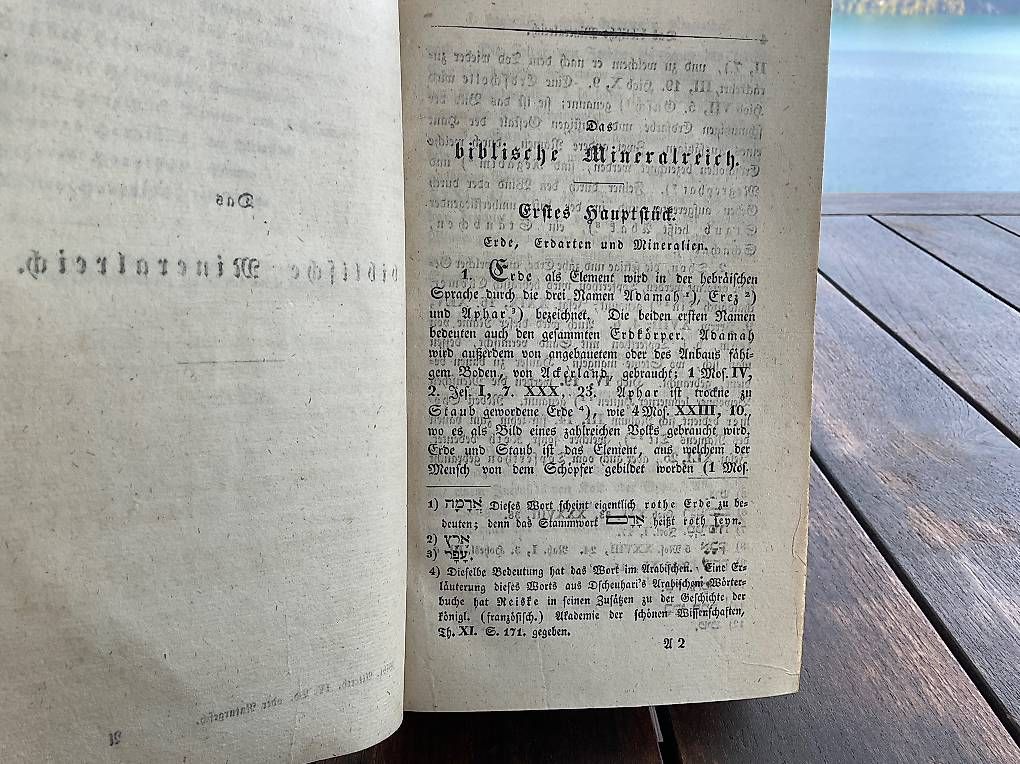 Das
biblische Mineralreich.
Erstes Hauptstück.
Erde, Erdarten und Mineralien.
1. Erde als Element wird in der hebräischen
Sprache durch die drei Namen Adamah ¹), Erez ²)
und Aphar ³) bezeichnet. Die beiden ersten Namen
bedeuten auch den gesammten Erdkörper. Adamah
wird außerdem von angebauetem oder des Anbaus fähi-
gem Boden, von Ackerland, gebraucht; 1 Mos. IV,
2. Jes. I, 7. XXX, 23. Aphar ist trockne zu
Staub gewordene Erde ⁴), wie 4 Mos. XXIII, 10.,
wo es als Bild eines zahlreichen Volks gebraucht wird.
Erde und Staub ist das Element, aus welchem der
Mensch von dem Schöpfer gebildet worden (1 Mos.
1) אֲדָמָה Dieses Wort scheint eigentlich rothe Erde zu be-
deuten; denn das Stammwort אָדַם heißt roth seyn.
2) אֶרֶץ
3) עָפָר.
4) Dieselbe Bedeutung hat das Wort im Arabischen. Eine Er-
läuterung dieses Worts aus Dscheuhari's Arabischem Wörter-
buche hat Reiske in seinen Zusätzen zu der Geschichte der
königl. (französisch.) Akademie der schönen Wissenschaften,
Th. XI. S. 171. gegeben.
A 2